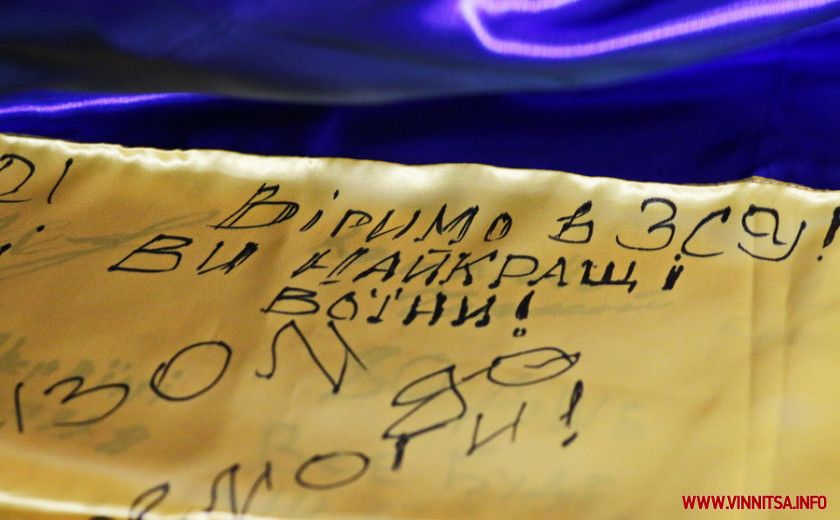 Віримо в ЗСУ!
ВИ НАЙКРАЩІ
ВОЇНИ!
до
WWW.VINNITSA.INFO